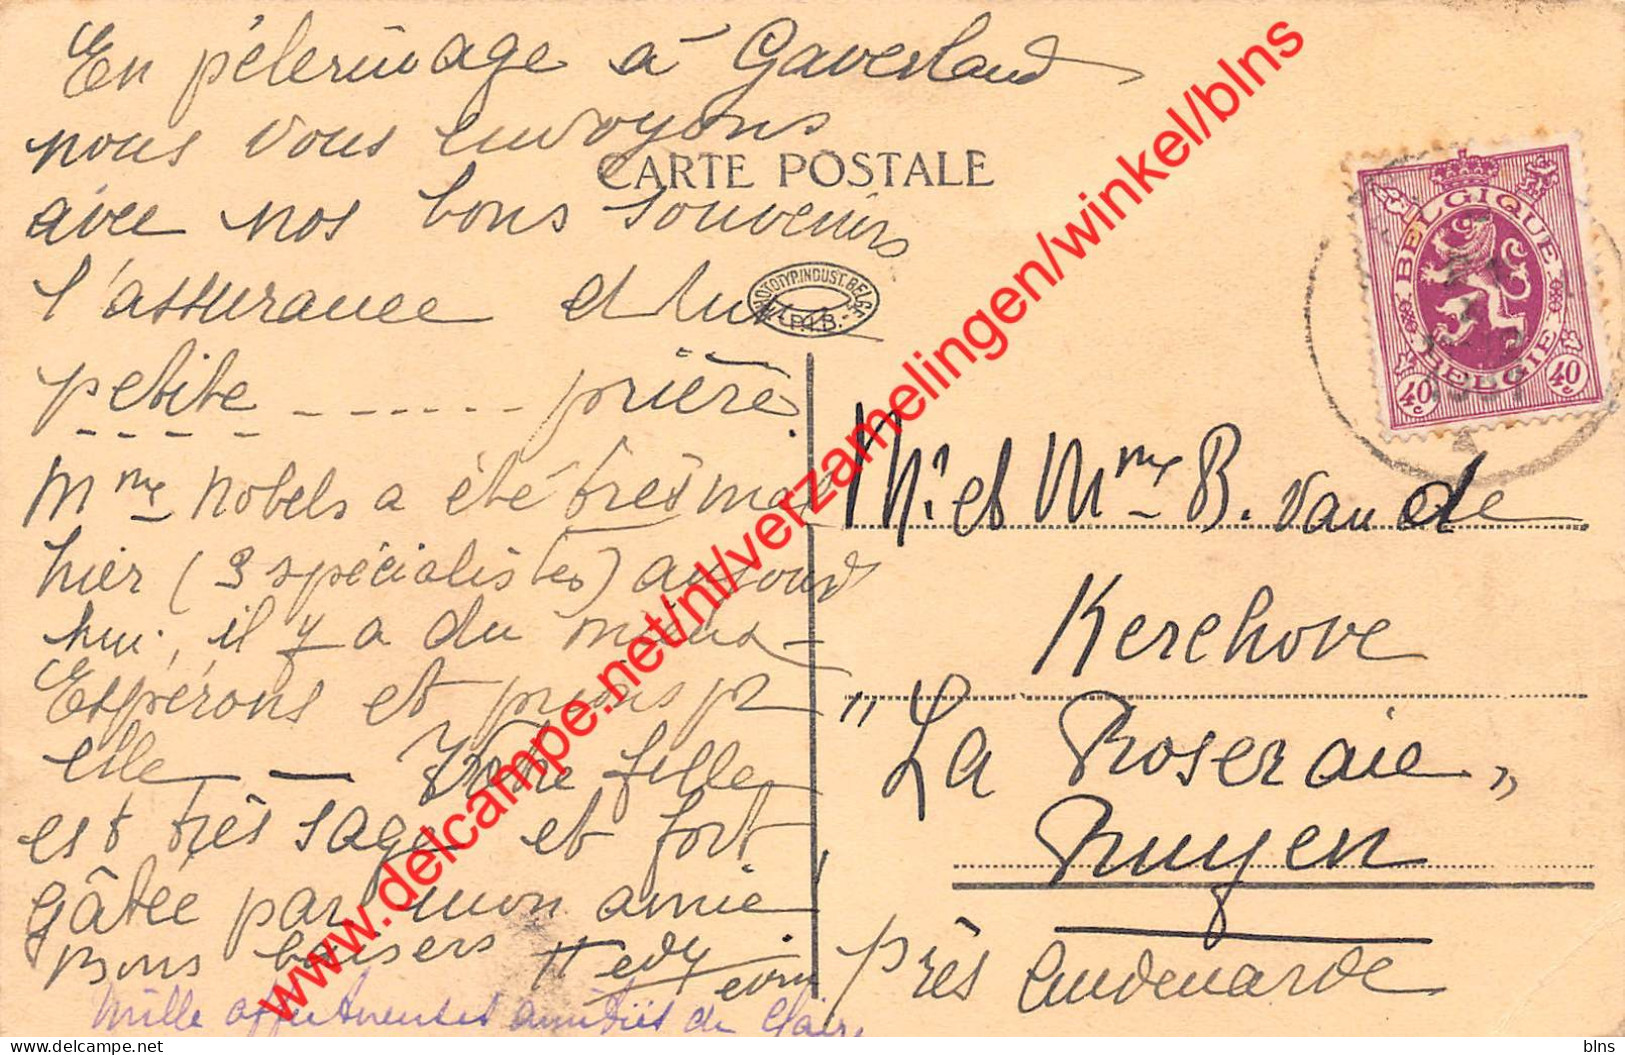 En pélerinage à Gaverland
nous vous envoyons
CARTE POSTALE
avec nos bons souvenirs
l'assurance d'une
PHOTOTYP. INDUST. BELGE
P.I.B.
petite ------ prière.
Mme Nobels a été très mal
hier (3 spécialistes) aujourd
hui, il y a du mieux -
Espérons et prions pr
elle — Votre fille
est très sage et fort
gâtée par mon amie
Bons baisers Hedwin
Mille affectueuses amitiés de Claire
BELGIQUE
BELGIË
40c 40c
Mr. et Mme B. Van de
Kerchove
"La Roseraie"
Ruyen
près Audenarde
www.delcampe.net/nl/verzamelingen/winkel/blns
blns